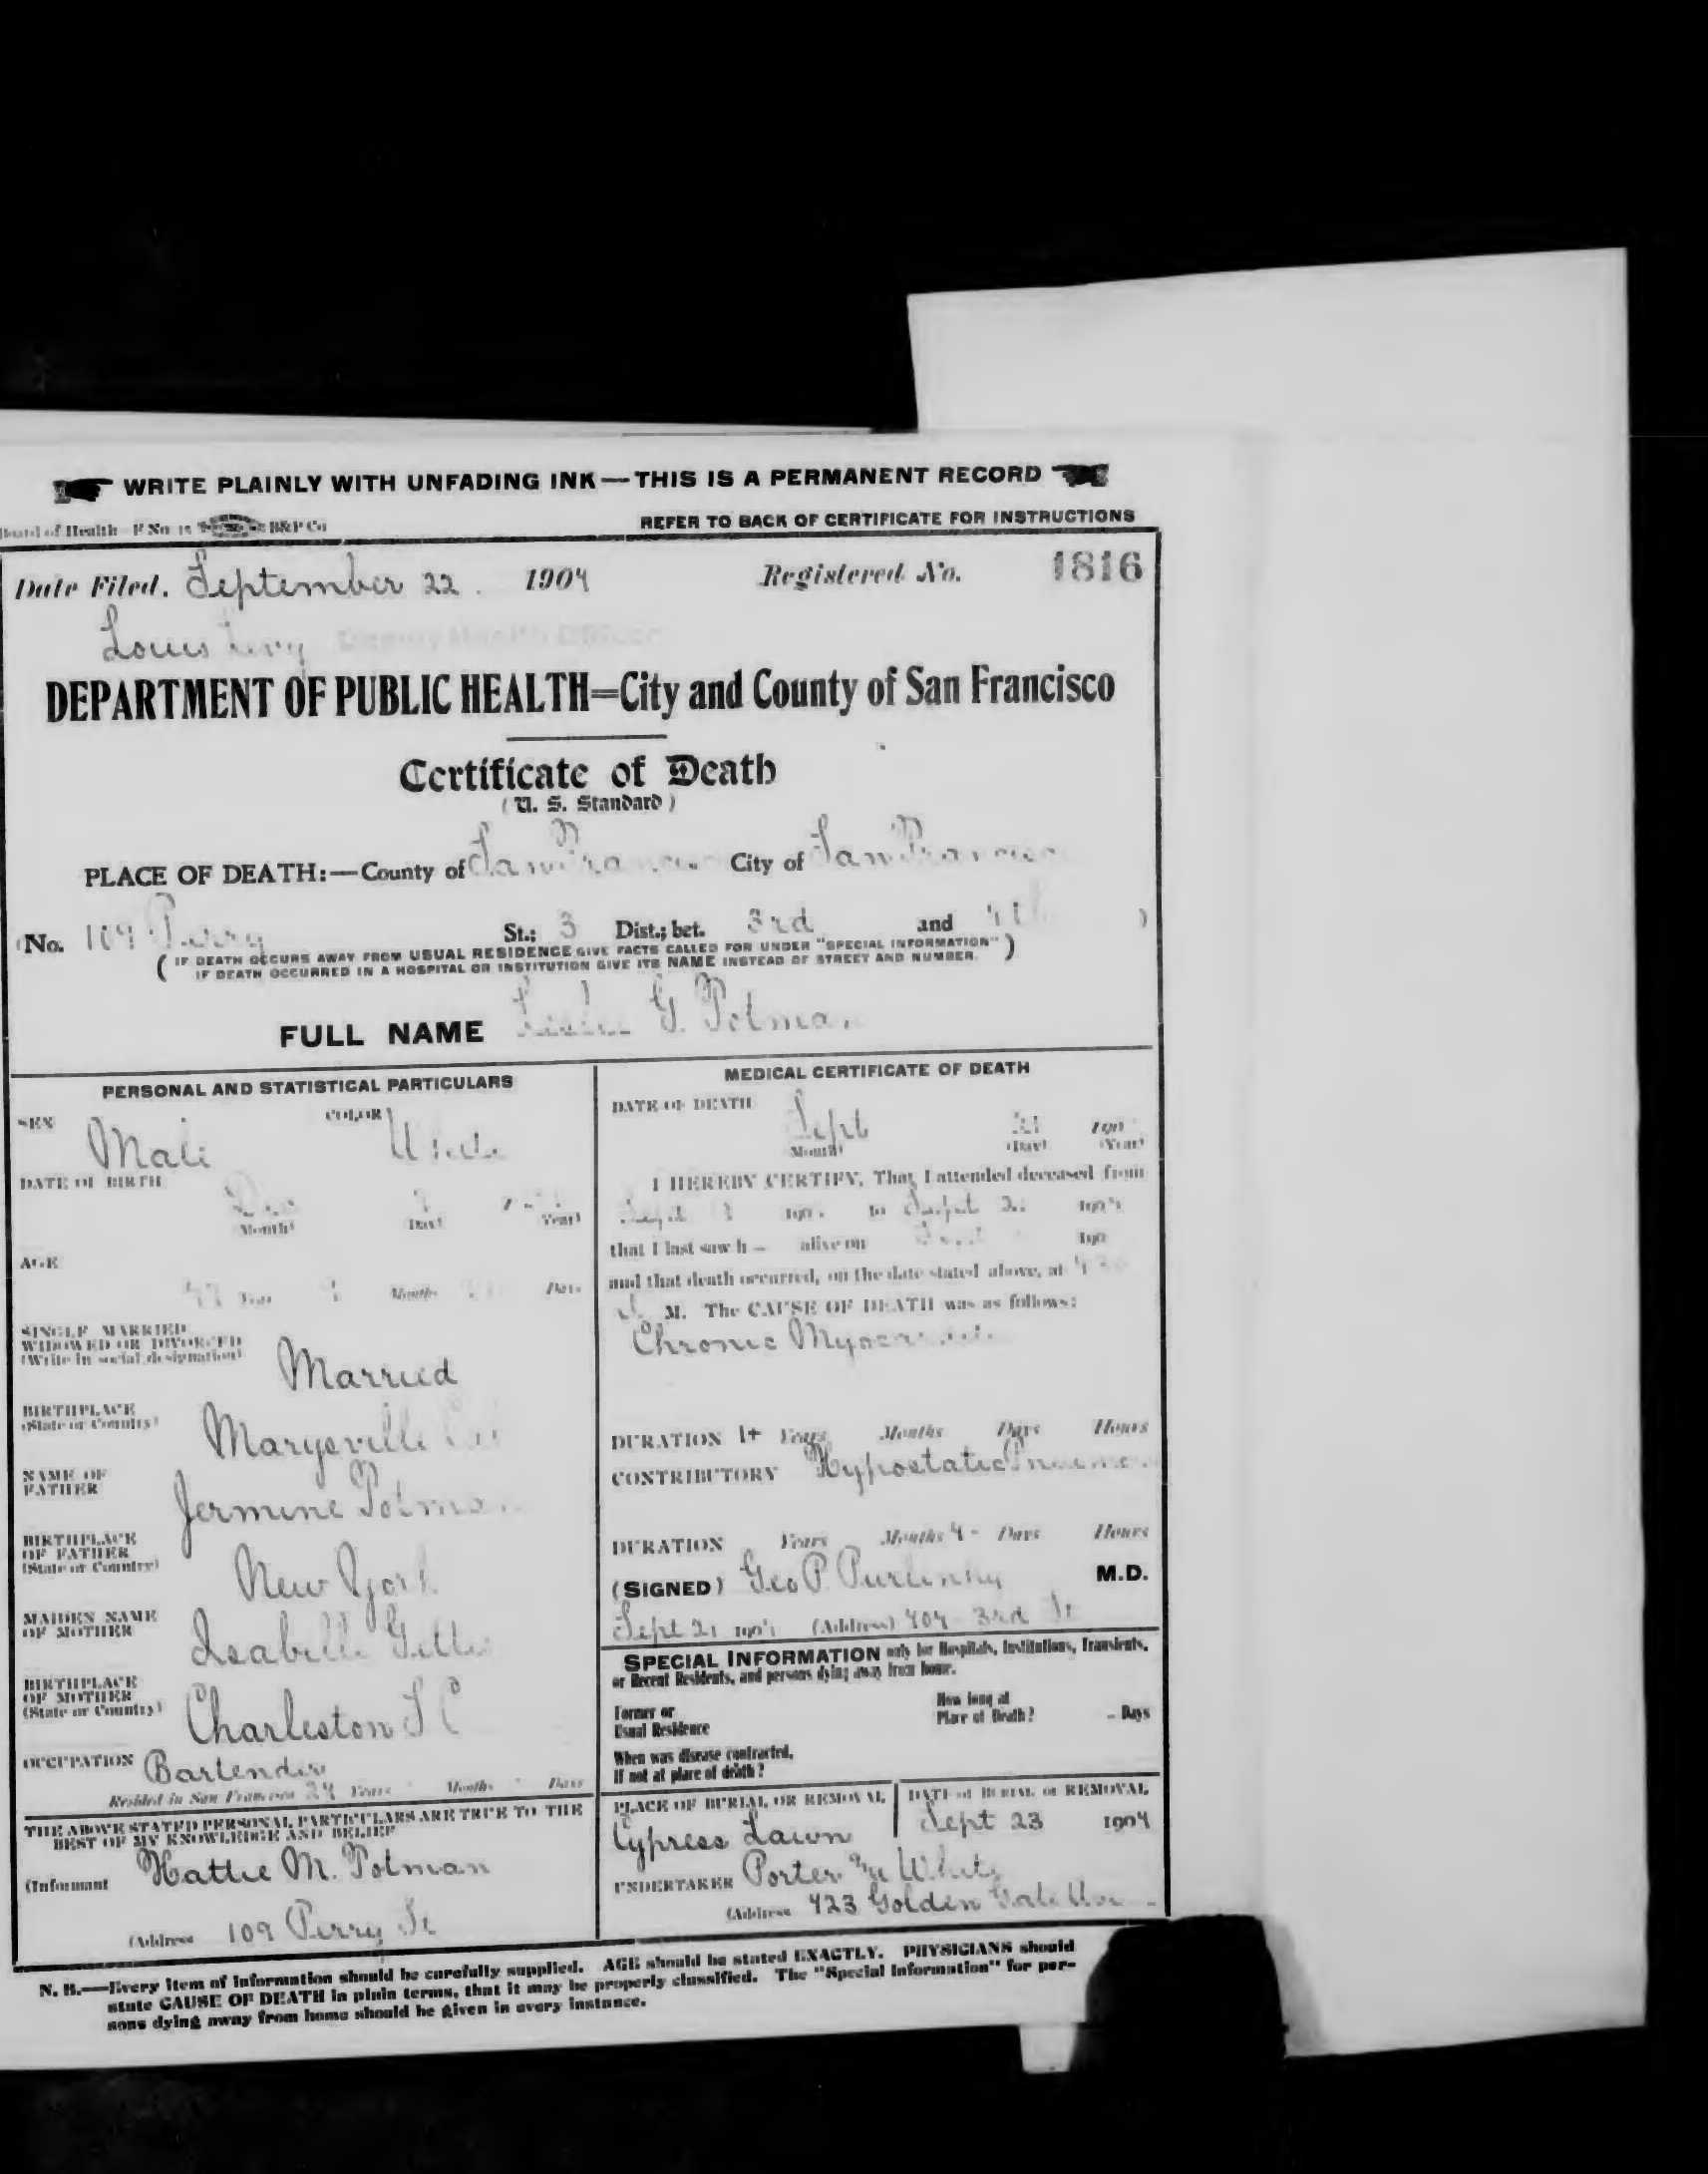 WRITE PLAINLY WITH UNFADING INK—THIS IS A PERMANENT RECORD
Board of Health F No 15 B&P Co
REFER TO BACK OF CERTIFICATE FOR INSTRUCTIONS
Date Filed. September 22. 1904 Registered No. 1816
Louis Levy Deputy Health Officer
DEPARTMENT OF PUBLIC HEALTH=City and County of San Francisco
Certificate of Death
(U. S. Standard)
PLACE OF DEATH:—County of San Francisco City of San Francisco
(No. 109 Perry St.; 3 Dist.; bet. 3rd and 4th )
( IF DEATH OCCURS AWAY FROM USUAL RESIDENCE GIVE FACTS CALLED FOR UNDER "SPECIAL INFORMATION"
IF DEATH OCCURRED IN A HOSPITAL OR INSTITUTION GIVE ITS NAME INSTEAD OF STREET AND NUMBER. )
FULL NAME G. Potman
PERSONAL AND STATISTICAL PARTICULARS
SEX Male COLOR
DATE OF BIRTH
(Month) (Day) (Year)
AGE
Years Months Days
SINGLE MARRIED
WIDOWED OR DIVORCED
(Write in social designation)
Married
BIRTHPLACE
(State or Country)
Marysville Cal
NAME OF
FATHER
Jermine Potman
BIRTHPLACE
OF FATHER
(State or Country)
New York
MAIDEN NAME
OF MOTHER
Isabelle
BIRTHPLACE
OF MOTHER
(State or Country)
Charleston S C
OCCUPATION Bartender
Resided in San Francisco 24 Years Months Days
THE ABOVE STATED PERSONAL PARTICULARS ARE TRUE TO THE
BEST OF MY KNOWLEDGE AND BELIEF
(Informant Hattie M. Potman
(Address 109 Perry St
MEDICAL CERTIFICATE OF DEATH
DATE OF DEATH Sept 21 190
(Month) (Day) (Year)
I HEREBY CERTIFY, That I attended deceased from
Sept 190 to Sept 21 1904
that I last saw h— alive on 190
and that death occurred, on the date stated above, at
M. The CAUSE OF DEATH was as follows:
Chronic
DURATION 1+ Years Months Days Hours
CONTRIBUTORY Hypostatic Pneumonia
DURATION Years Months 4 - Days Hours
(SIGNED) Geo P. M.D.
Sept 21 1904 (Address) 404 3rd St
SPECIAL INFORMATION only for Hospitals, Institutions, Transients,
or Recent Residents, and persons dying away from home.
Former or
Usual Residence
How long at
Place of Death? Days
When was disease contracted,
If not at place of death?
PLACE OF BURIAL OR REMOVAL
Cypress Lawn
DATE of BURIAL or REMOVAL
Sept 23 1904
UNDERTAKER Porter & White
(Address 423 Golden Gate Ave
N. B.—Every item of information should be carefully supplied. AGE should be stated EXACTLY. PHYSICIANS should
state CAUSE OF DEATH in plain terms, that it may be properly classified. The "Special Information" for per-
sons dying away from home should be given in every instance.